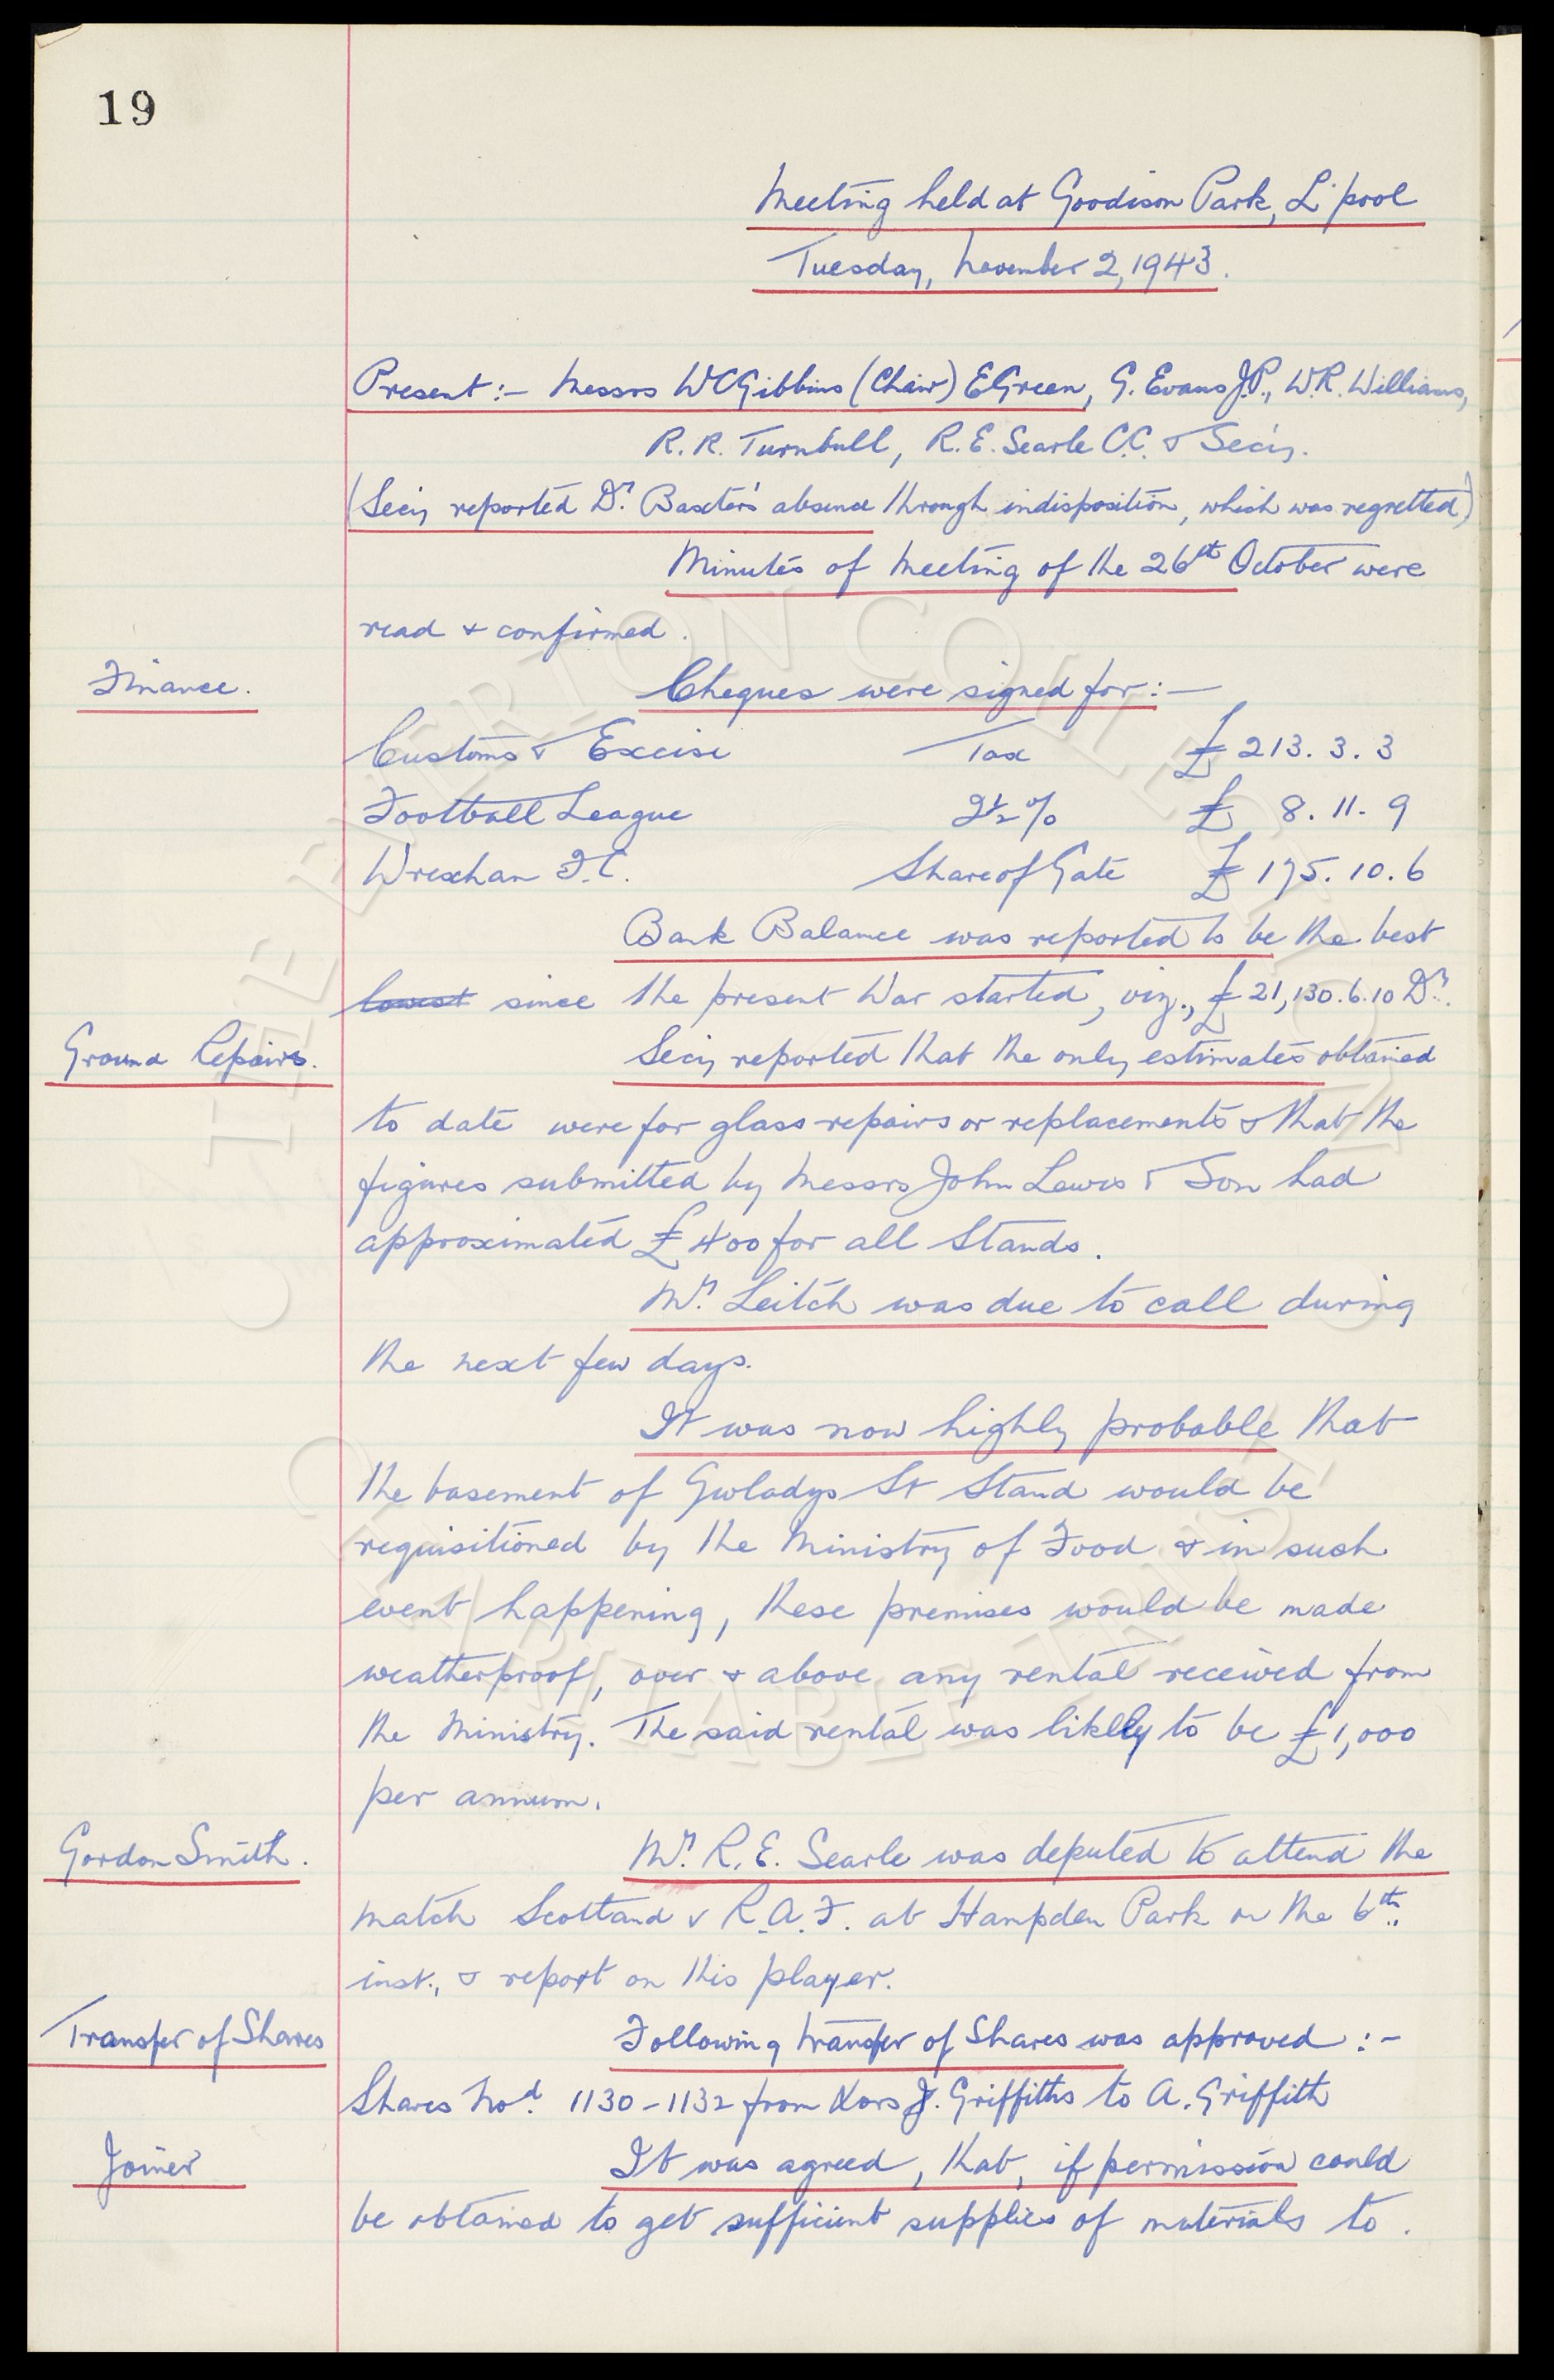 19
Meeting held at Goodison Park, L'pool
Tuesday, November 2, 1943.
Present:- Messrs W C Gibbins (Chair) E Green, G. Evans J.P., W.R. Williams,
R. R. Turnbull, R. E. Searle C.C. & Sec'y.
(Sec'y reported Dr. Baxter's absence through indisposition, which was regretted)
Minutes of Meeting of the 26th October were
read & confirmed.
Finance.
Cheques were signed for:-
Customs & Excise Tax £ 213. 3. 3
Football League 2½% £ 8. 11. 9
Wrexham F.C. Share of Gate £ 175. 10. 6
Bank Balance was reported to be the best
lowest since the present War started, viz., £21,130. 6. 10 Dr.
Ground Repairs.
Sec'y reported that the only estimates obtained
to date were for glass repairs or replacements & that the
figures submitted by Messrs John Lewis & Son had
approximated £400 for all Stands.
Mr. Leitch was due to call during
the next few days.
It was now highly probable that
the basement of Gwladys St Stand would be
requisitioned by the Ministry of Food & in such
event happening, these premises would be made
weatherproof, over & above any rental received from
the Ministry. The said rental was likely to be £1,000
per annum.
Gordon Smith.
Mr. R. E. Searle was deputed to attend the
match Scotland v R.A.F. at Hampden Park on the 6th
inst., & report on this player.
Transfer of Shares
Following transfer of Shares was approved:-
Shares Nod. 1130-1132 from J. Griffiths to A. Griffith
Joiner
It was agreed, that, if permission could
be obtained to get sufficient supplies of materials to.
THE EVERTON COLLECTION
CHARITABLE TRUST